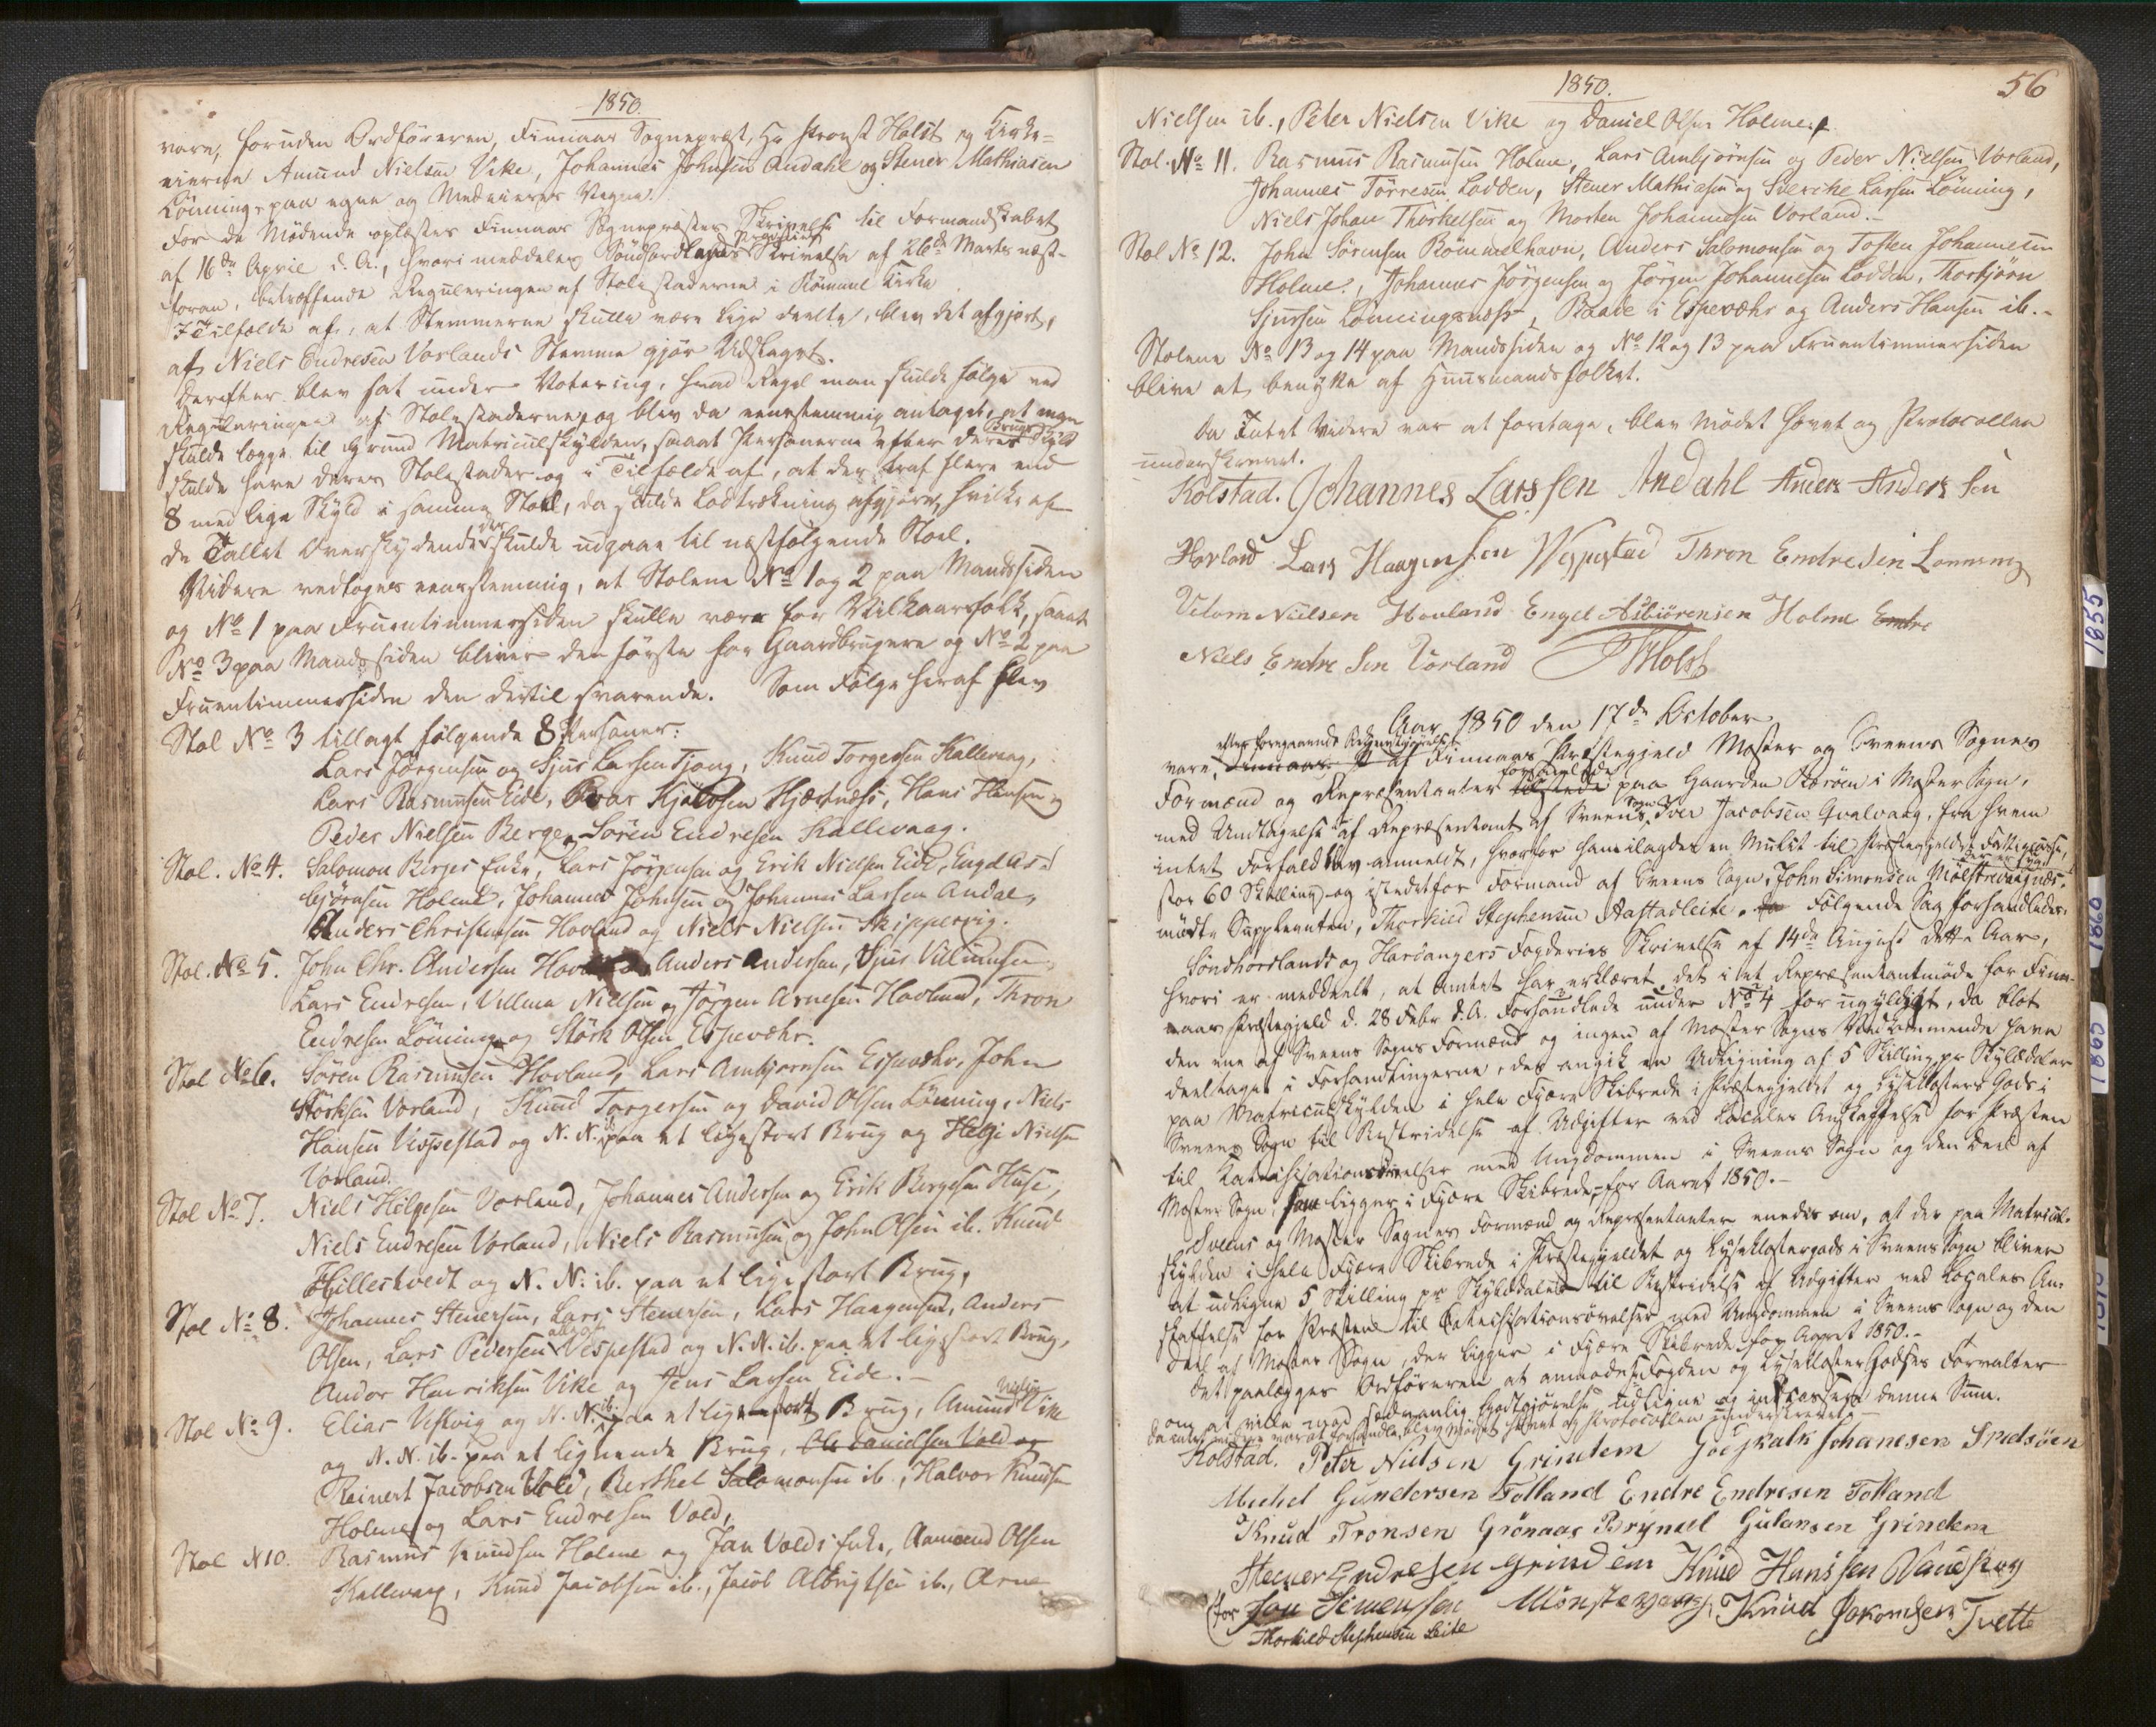 1850.
vare, foruden Ordføreren, Finnaas Sognepræst, Hr Provst Holst og Kirke-
eierne Amund Nielsen Vike, Johannes Johnsen Andahl og Stener Mathiasen
Lönning, paa egne og Medeieres Vegne.
For de Mødende oplæstes Finnaas Sognepræstes Skrivelse til Formandskabet
af 16de April d. A., hvori meddeles Søndhordlehns Provsties Skrivelse af 26de Marts næst-
foran, betræffende Reguleringen af Stolestaderne i Römmel Kirke.
I Tilfælde af, at Stemmerne skulle være lige deelte, blev det afgjort,
at Niels Endresen Vorlands Stemme gjør Udslaget.
Derefter blev sat under Votering, hvad Regel man skulde følge ved
Reguleringen af Stolestaderne, og blev da eenstemmig antaget, at man
skulde lægge til Grund Matriculskylden, saaat Personerne efter deres Brugs Skyld
skulde have deres Stolestader og i Tilfælde af, at der traf flere end
8 med lige Skyld i samme Stoel, da skulde Lodtrækning afgjøre, hvilke af
de Tallet Overskydende der skulde udgaae til næstfølgende Stoel.
Videre vedtoges eenstemmig, at Stolene No 1 og 2 paa Mandssiden
og No 1 paa Fruentimmersiden skulle være for Vilkaarsfolk, saaat
No 3 paa Mandssiden bliver den første for Gaardbrugere og No 2 paa
Fruentimmersiden den dertil svarende. Som Følge heraf blev
Stol No 3 tillagt følgende 8 Personer:
Lars Jörgensen og Sjur Larsen Tjong, Knud Torgersen Kallevaag,
Lars Rasmussen Eide, Peder Hjertnæs, Hans Hansen og
Peder Nielsen Berge, Sören Endresen Kallevaag.
Stol. No 4. Salomon Berges Enke, Lars Jörgensen og Erik Nielsen Eide, Engel As-
björnsen Holme, Johannes Johnsen og Johannes Larsen Andal,
Anders Christensen Hovland og Niels Nielsen Skippervig.
Stol. No 5. John Chr. Andersen Anders Andersen, Sjur Villumsen,
Lars Endresen, Villum Nielsen og Jörgen Arnesen Hovland, Thron
Endresen Lönning og Störk Olsen Espevæhr.
Stol No 6. Sören Rasmussen Hovland, Lars Ambjørnsen Espevæhr, John
Störksen Vorland, Knud Torgersen og David Olsen Lönning, Niels
Hansen Vespestad og N. N. ib. paa et ligestort Brug og Helge Nielsen
Vorland.
Stol No 7. Niels Helgesen Vorland, Johannes Andersen og Erik Bergesen Huse,
Niels Endresen Vorland, Niels Rasmussen og John Olsen ib. Knud
Hillestvedt og N. N. ib. paa et ligestort Brug.
Stol No 8. Johannes Stenersen, Lars Stenersen, Lars Haagensen, Anders
Olsen, Lars Pedersen Vespestad og N. N. ib. paa et ligestort Brug,
Andor Henriksen Vike og Jens Larsen Eide.-
Stol No 9. Elias Vestvig og N. N. ib. paa et ligestort Brug, Amund Nielsen Vike
og N. N. ib. paa et lignende Brug, Ole Danielsen Vold og
Reinert Jacobsen Vold, Berthel Salomonsen ib., Halvor Knudsen
Holme og Lars Endresen Vold,
Stol N 10. Rasmus Knudsen Holme og Jan Volds Enke, Aamund Olsen
Kallevaag, Knud Jacobsen ib., Jacob Albrigtsen ib., Arne
1850.
56
Nielsen ib., Peter Nielsen Vike og Daniel Olsen Holme.
Stol. No 11. Rasmus Rasmussen Holme, Lars Ambjörnsen og Peder Nielsen Vorland,
Johannes Törresen Lodden, Stener Mathiasen og Sverche Larsen Lönning,
Niels Johan Thorkelsen og Morten Johannesen Vorland.-
Stol No 12. John Sörensen Römmelhavn, Anders Salomonsen og Tosten Johannesen
Holme, Johannes Jörgensen og Jörgen Johannesen Lodden, Thorbjörn
Sjursen Lönningsnæss, Baade i Espevæhr og Anders Hansen ib.-
Stolene No 13 og 14 paa Mandssiden og No 12 og 13 paa Fruentimmersiden
blive at benytte af Huusmandsfolket.
Da Intet videre var at foretage, blev Mødet hævet og Protocollen
underskrevet.
Kolstad. Johannes Larssen Andahl Anders Anders Sen
Hovland Lars Haagensen Wespestad Thron Endresen Lonning
Velom Nielsen Hovland Engel Asbiörensen Holme Endre
Niels Endre Sen Vorland Holst
Aar 1850 den 17de October
vare, efter foregaaende Bekjendtgjørelse af Finnaas Præstegjeld Moster og Sveens Sognes
Formænd og Repræsentanter forsamlede paa Gaarden Store i Moster Sogn,
med Undtagelse af Repræsentant af Sveens Sogn Iver Jacobsen Qvalvaag, fra hvem
intet Forfald blev anmeldt, hvorfor ham ilagdes en Mulct til Præstegjeldets Fattigcasse,
stor 60 Skilling og istedetfor Formand af Sveens Sogn, John Simonsen
mødte Suppleanten, Thorkild Stephensen Aastadleite. Følgende Sag forhandledes:
Søndhordlands og Hardangers Fogderies Skrivelse af 14de August dette Aar,
hvori er meddeelt, at Amtet har erklæret det i et Repræsentantmøde for Finn-
aas Præstegjeld d. 28 Febr. d. A. Forhandlede under No 4 for ugyldigt, da blot
den ene af Sveens Sogns Formænd og ingen af Moster Sogns Vedkommende have
deeltaget i Forhandlingerne, der angik en Udligning af 5 Skilling pr Skylddaler
paa Matriculskylden i hele Fjære Skibrede i Præstegjeldet og Lyseklosters Gods i
Sveens Sogn til Bestridelse af Udgifter ved Locales Anskaffelse for Præsten
til Katechisationsøvelser med Ungdommen i Sveens Sogn og den Deel af
Moster Sogn, som ligger i Fjære Skibrede, for Aaret 1850.-
Sveens og Moster Sognes Formænd og Repræsentanter enedes om, at der paa Matricul-
skylden i hele Fjære Skibrede i Præstegjeldet og Lyseklostergods i Sveens Sogn bliver
at udligne 5 Skilling pr Skylddaler til Bestridelse af Udgifter ved Locales An-
skaffelse for Præsten til Katechisationsøvelser med Ungdommen i Sveens Sogn og den
Deel af Moster Sogn, der ligger i Fjære Skibrede for Aaret 1850.-
Det paalægges Ordføreren at anmode Fogden og Lyseklostergodses Forvalter
om at ville mod sædvanlig Godtgjørelse udligne og indcassere denne Sum.
Da intet videre var at forhandle, blev Mødet hævet og Protocollen underskrevet.
Kolstad. Peter Nielsen Grindem Johanesen
Michel Gundersen Tolland Endre Endresen Tolland
Knud Tronsen Grönaas Brynnel Grindem
Stener Endresen Grindem Knud Hanssen
For Jon Simensen Knud Tvette
Thorkild Stephensen Leite
1855
1860
1865
1870